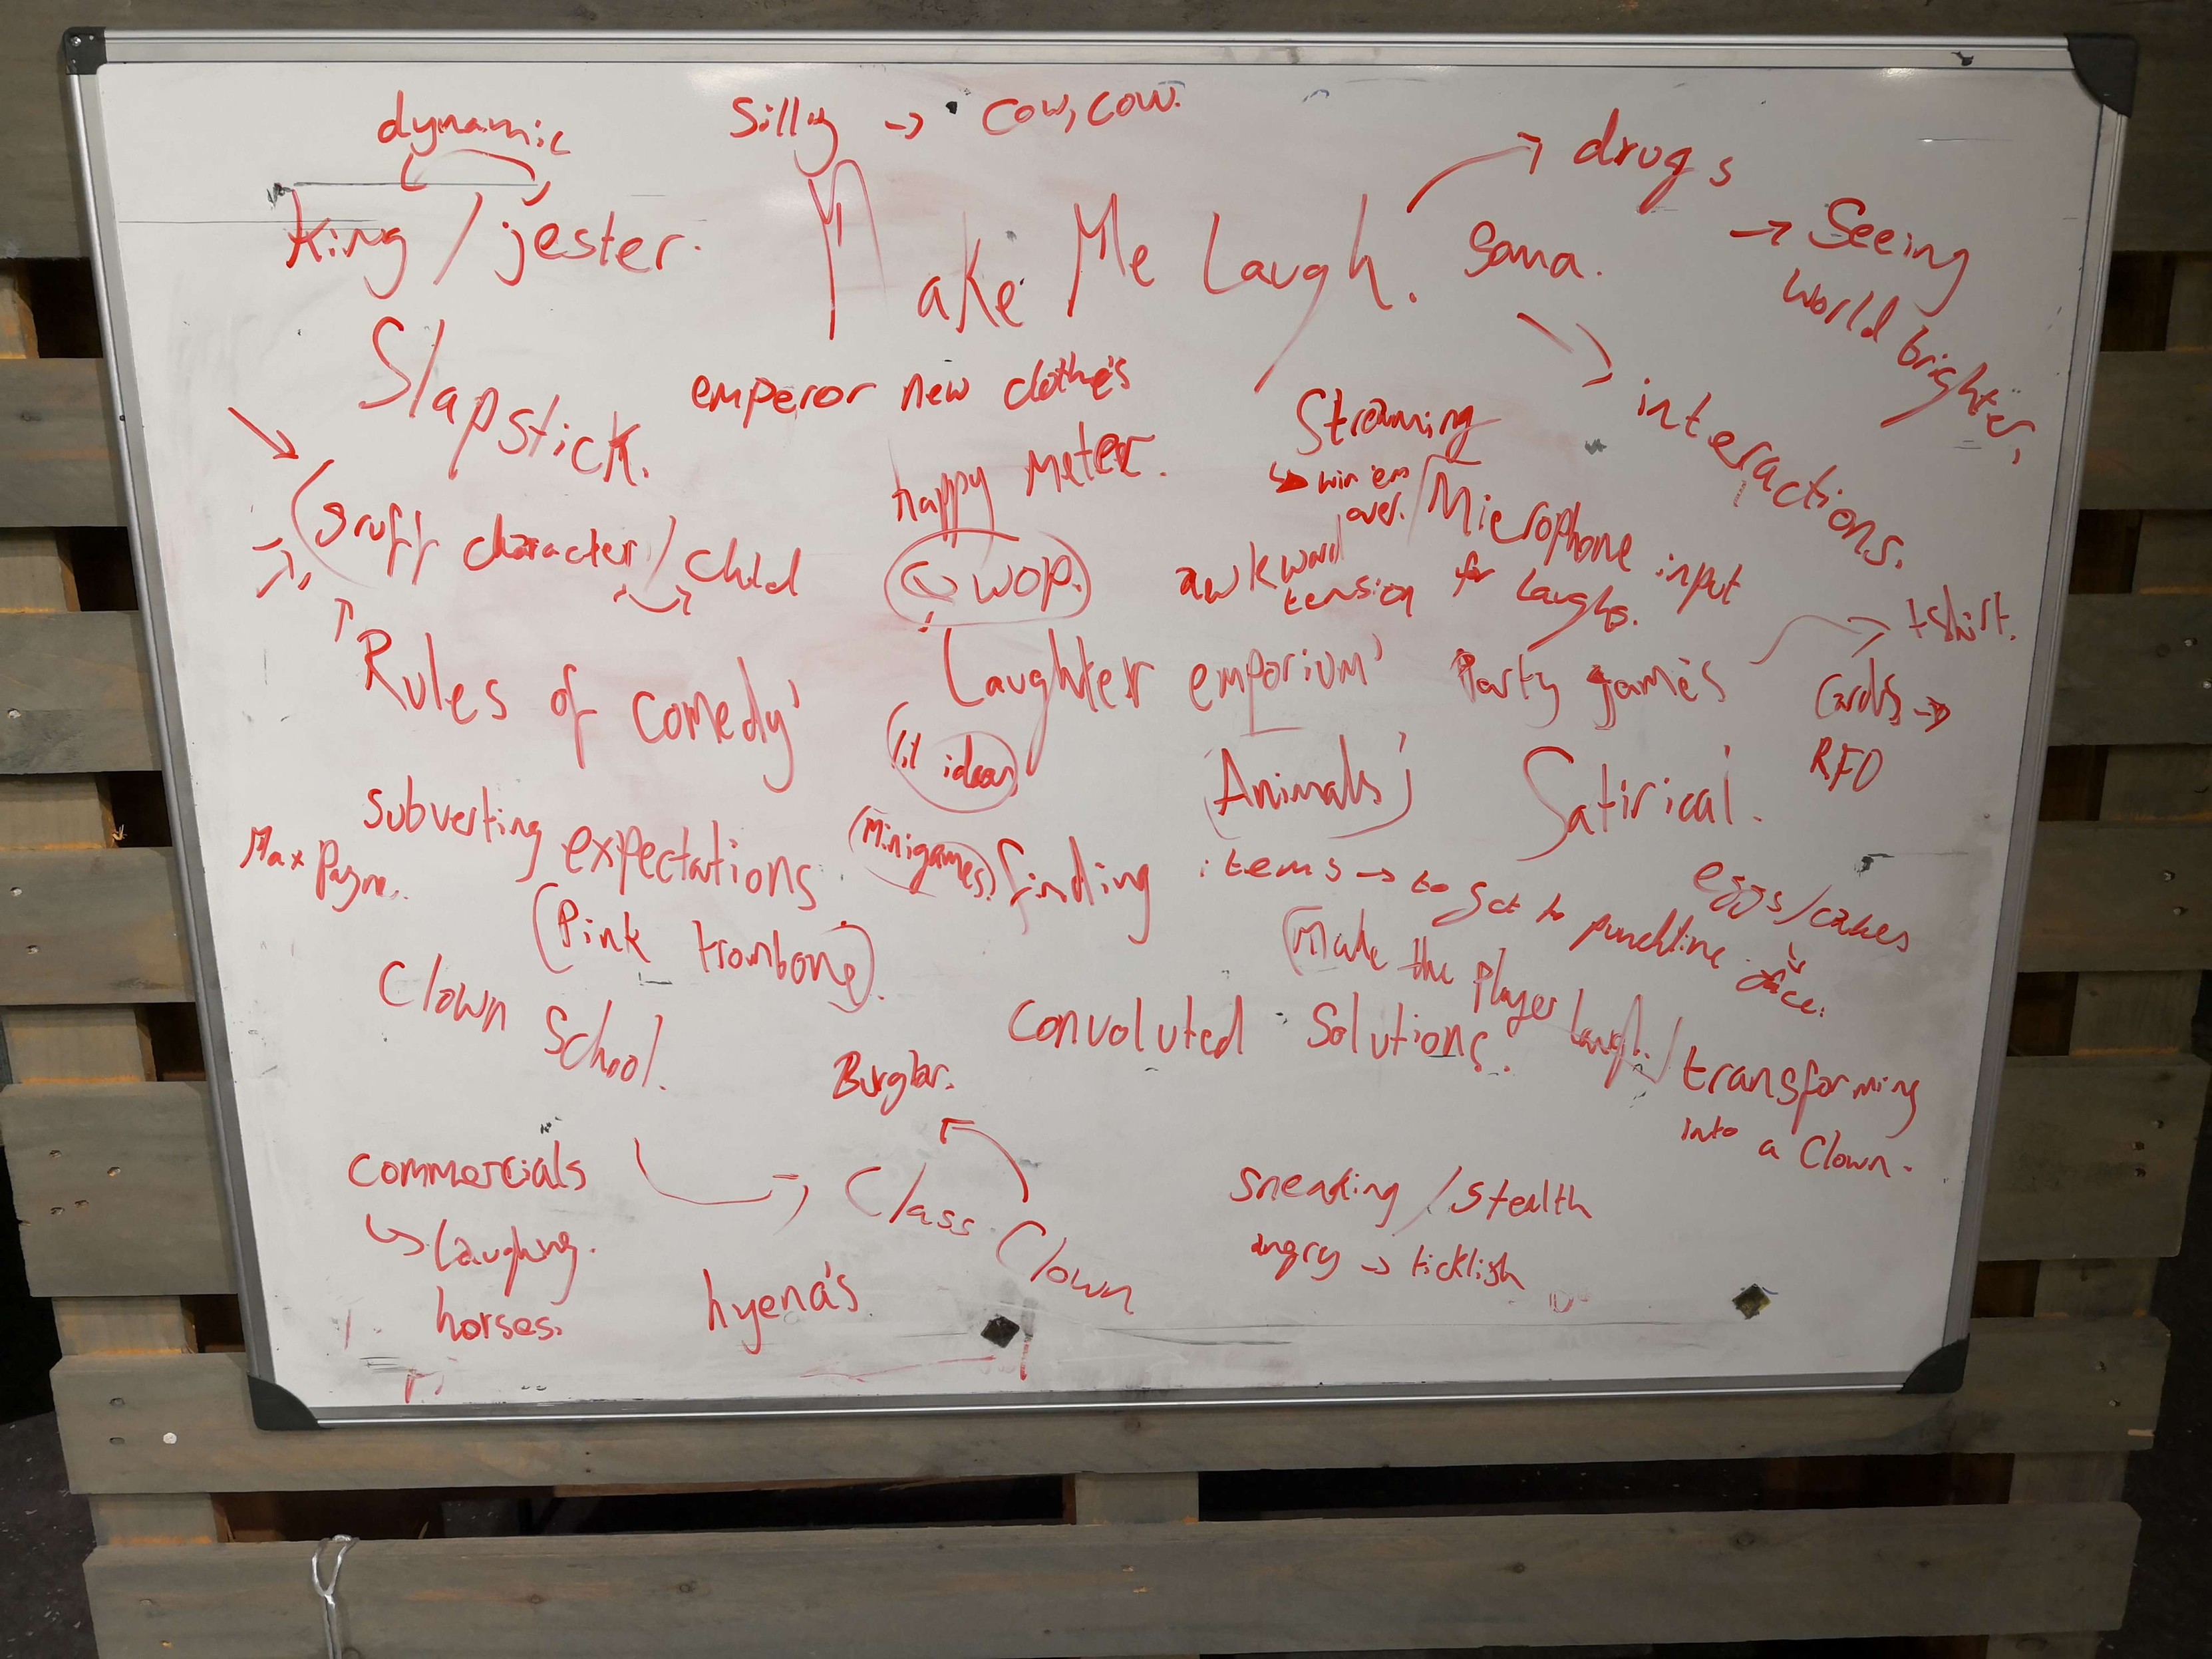 dynamic
Silly → cow, cow.
King / jester.
Make Me Laugh.
→ drugs
→ Seeing
world brighter.
Soma.
Slapstick.
emperor new clothe's
→ interactions.
happy meter.
Streaming
↳ win 'em
over.
/ Microphone input
(gruff character / child
QWOP.
awkward
tension for laughs.
Rules of comedy'
Laughter emporium'
Party game's
→ tshirt.
Cards →
RFO
(lil ideas)
(Animals)
Satirical.
subverting expectations.
Max Payne.
(Minigames)
finding items → to get to punchline.
eggs/cakes
↘ face.
(Pink trombone).
(Make the player laugh.)
Clown School.
Convoluted Solutions.
/ transforming
into a Clown.
Burglar.
→ Class Clown
commercials
↳ laughing.
horses.
hyena's
sneaking / stealth
angry → ticklish